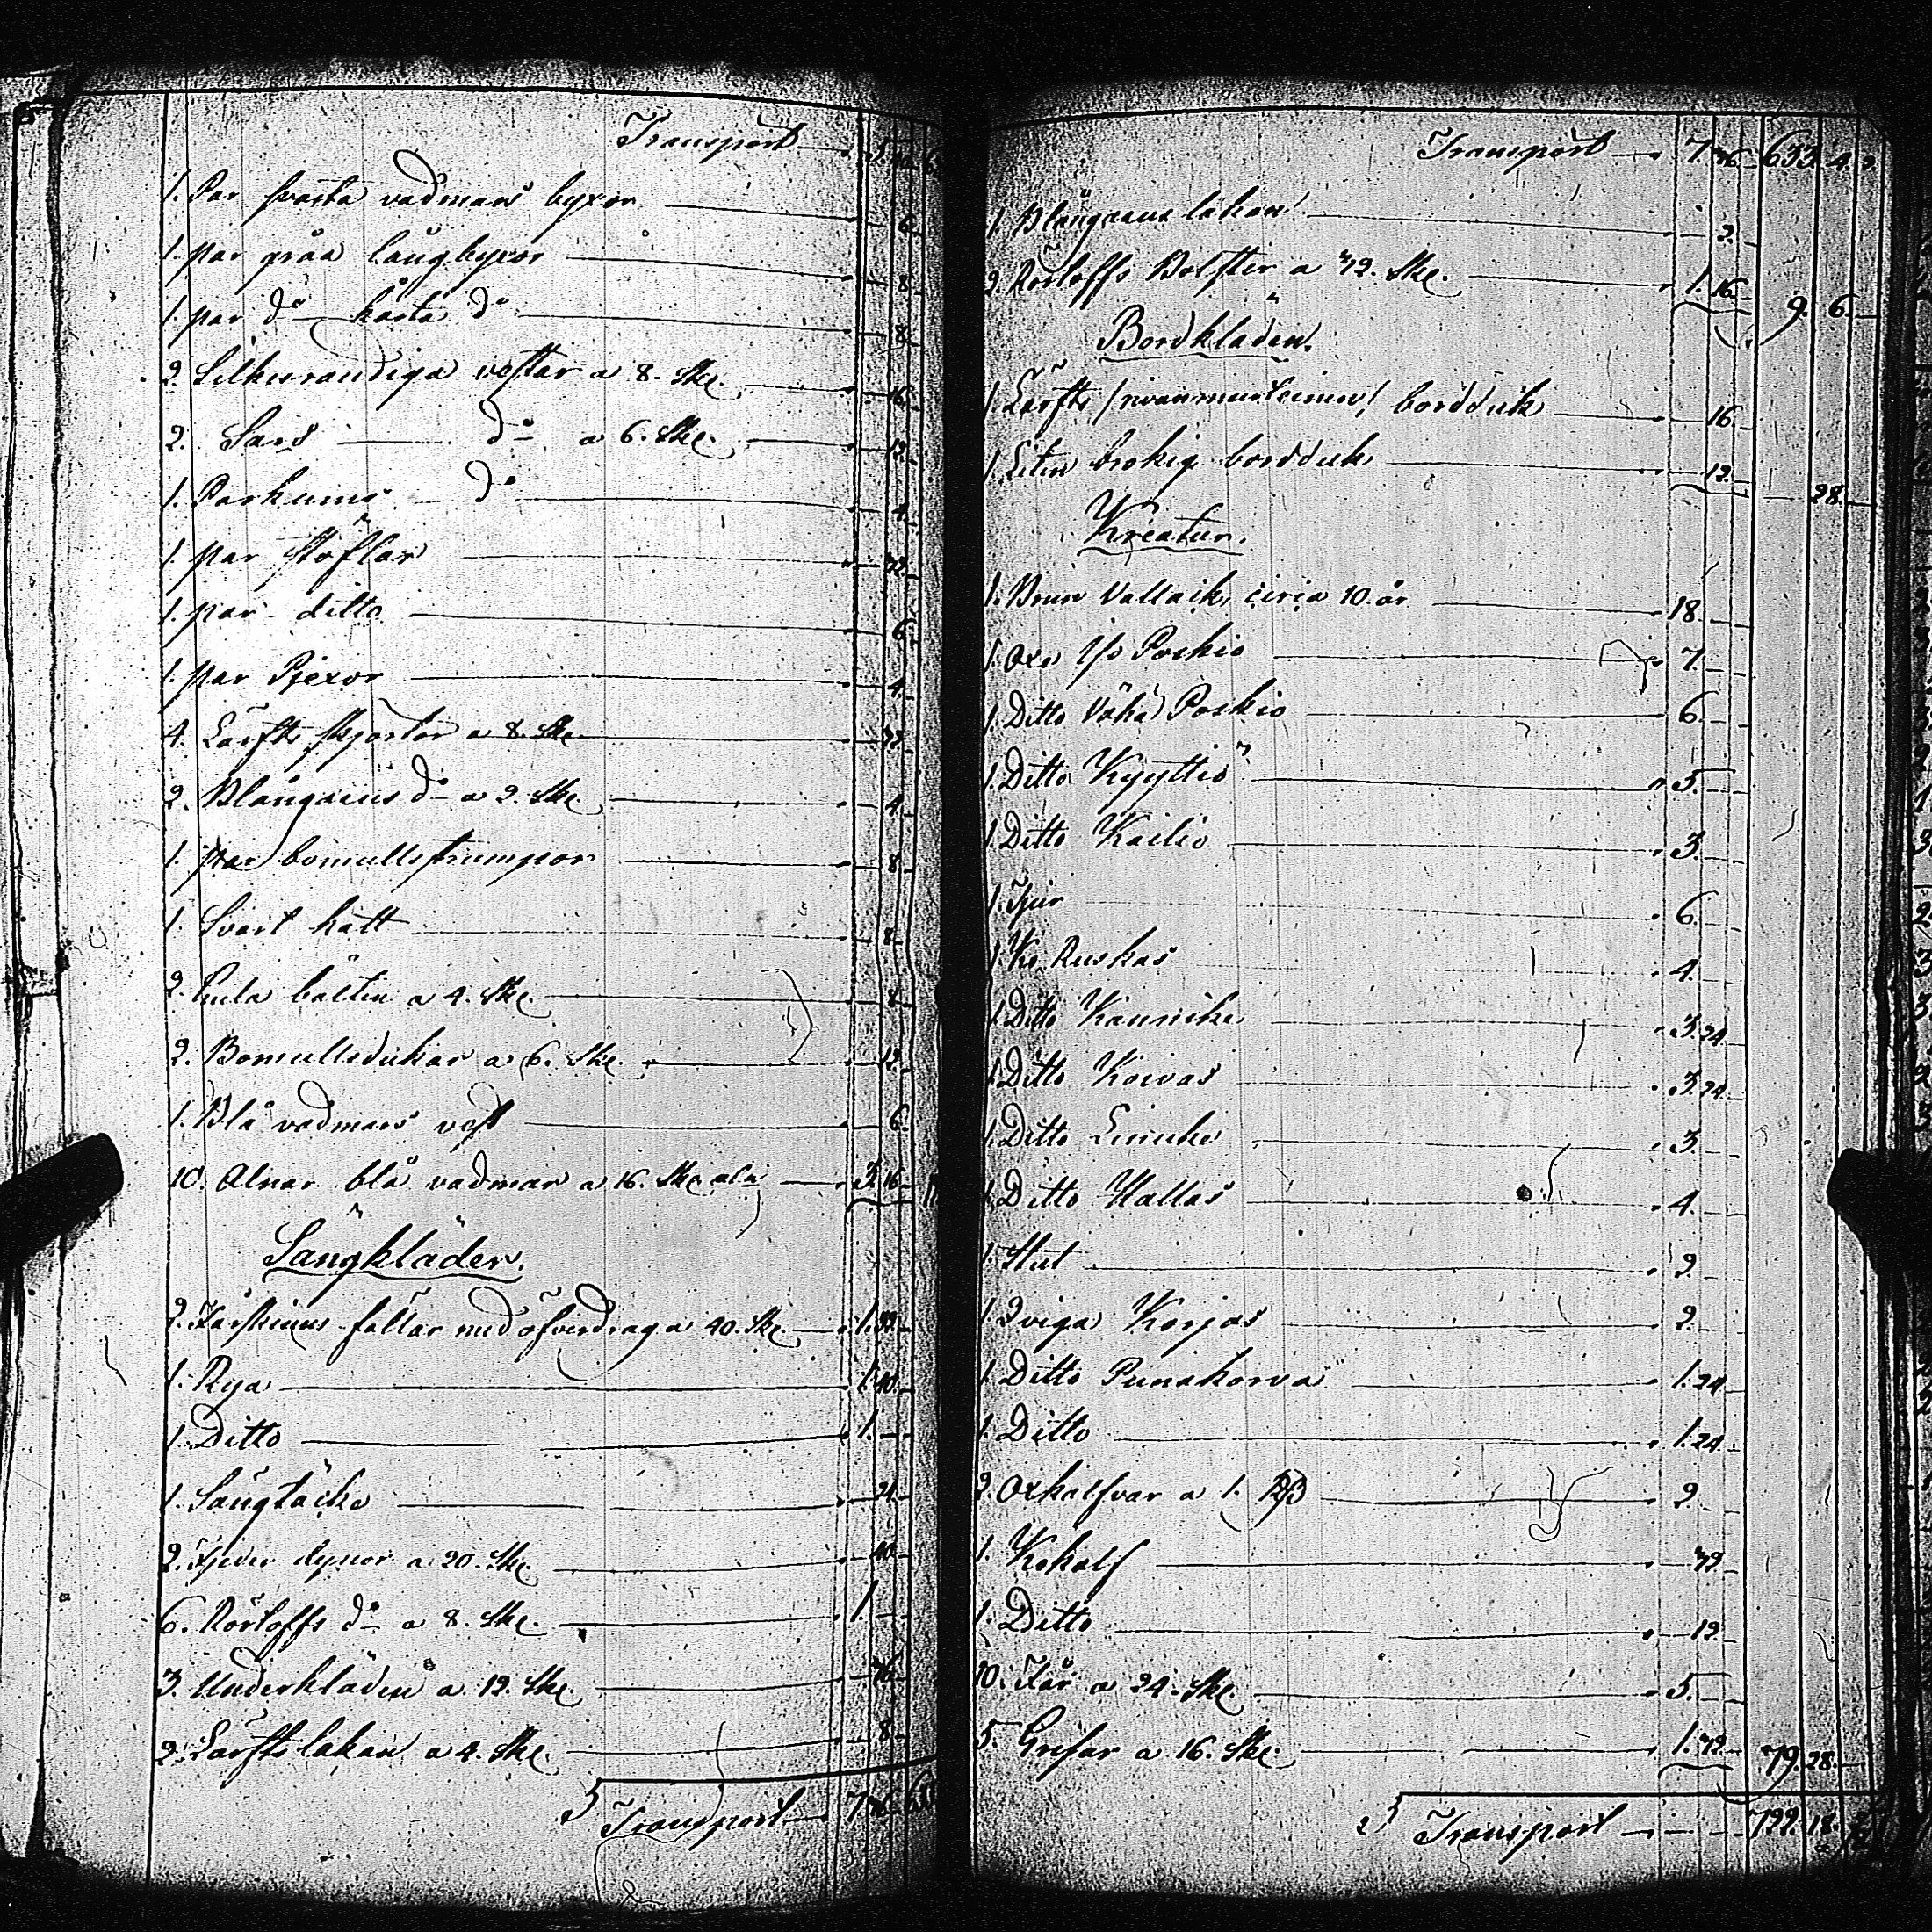 Transport
1. Par svarta vadmans byxor — 6.
1. par gråa långbyxor — 8.
1. par do korta do — 8.
2. Silkesrandiga vestar a 8. Ske. — 16.
2. Sars do a 6. Ske. — 12.
1. Parkums do — 4.
1. par stöflar — 32.
1. par ditto — 6.
1. par Pjexor — 4.
4. Lärfts skjortor a 8. Ske. — 32.
2. Blångarns do a 2. Ske. — 4.
1. par bomullsstrumpor — 8.
1. Svart hatt — 8.
2. bälten a 4. Ske. — 8.
2. Bomullsdukar a 6. Ske. — 12.
1. Blå vadmans vest — 6.
10. Alnar blå vadmar a 16. Ske aln — 3. 16.
Sängkläder.
2. Fårskinns fällar med öfverdrag a 40. Ske. — 1. 32.
1. Rya — 1. 40.
1. Ditto — 1.
1. Sängtäcke — 24.
2. Fjeder dynor a 20. Ske. — 40.
6. Rörloffs do a 8. Ske. — 1.
3. Underkläden a 12. Ske. — 36.
2. Lärfts lakan a 4. Ske. — 8.
Transport — 7. 36.
Transport — 7. 36. 633. 4. 2.
1. Blångarns lakan — 2.
2. Rörloffs Bolster a 32. Ske. — 1. 16. 9. 6.
Bordkläden.
1. Lärfts bordduk — 16.
1. Liten brokig borduk — 12. 28.
Kreatur.
1. Brun Vallack, circa 10. år — 18.
1. Oxe Iso Poikio — 7.
1. Ditto Vähä Poikio — 6.
1. Ditto Kyyttiö — 5.
1. Ditto Kailio — 3.
1. Tjur — 6.
1. Ko Ruskas — 4.
1. Ditto Kaunike — 3. 24.
1. Ditto Koivas — 3. 24.
1. Ditto — 3.
1. Ditto Hallas — 4.
1. Stut — 2.
1. Qviga Korjas — 2.
1. Ditto Punakorva — 1. 24.
1. Ditto — 1. 24.
2. Oxkalfvar a 1. — 2.
1. Kokalf — 32.
1. Ditto — 12.
10. Får a 24. Ske. — 5.
5. Grisar a 16. Ske. — 1. 32. 79. 28.
Transport — 722. 18.